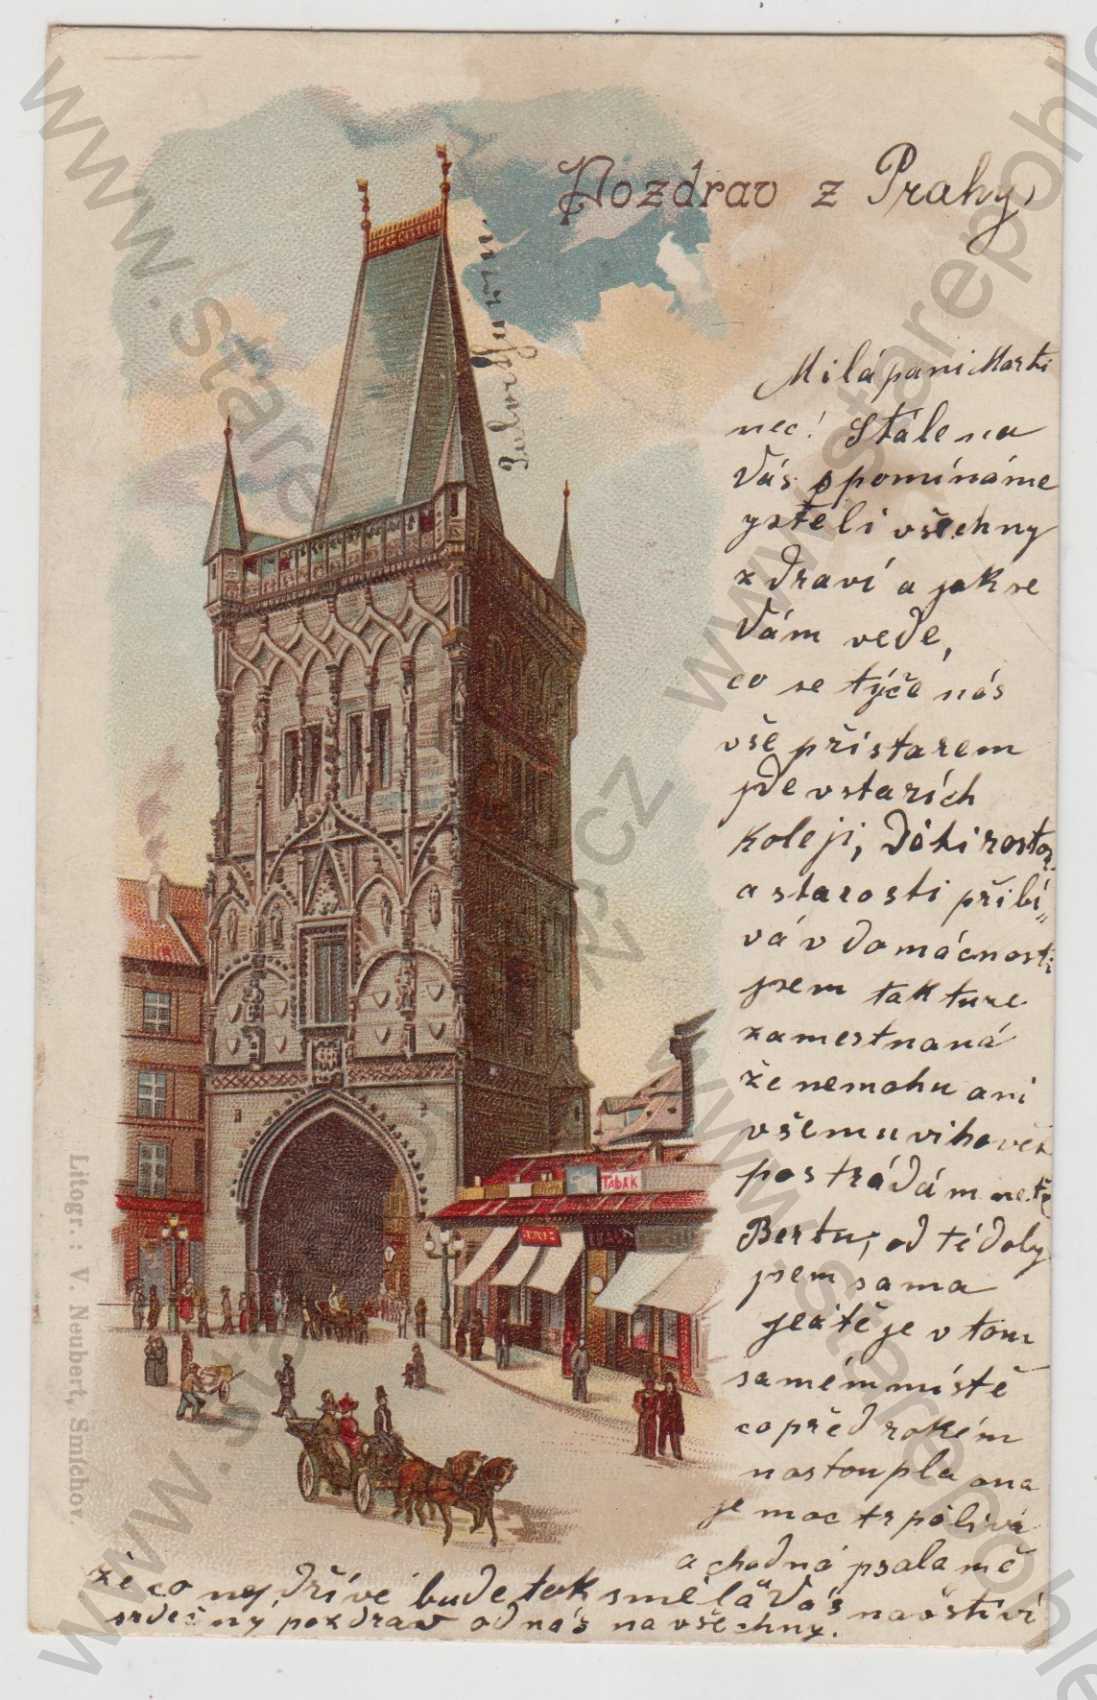 Pozdrav z Prahy,
Milá pani Marti
nec! Stále na
Vás spomínáme
ysteli všechny
zdraví a jak se
Vám vede,
co se týče nás
vše při starem
jde v starích
koleji, Děti rostou
a starosti přibí„
vá v domácnosti
jsem tak ture
zamestnaná
že nemohu ani
všemu vihovět
postrádám
Bertu, od té doby
jsem sama
ještě je v tom
samém místě
co před rokém
nastoupla ona
je moc trpělivá
a chodná psala mě
že co nejdříve bude tak smělá a Vás naštíví
srdečny pozdrav od nás na všechny.
TABAK
Litogr.: V. Neubert, Smíchov.
www.starepohledy.cz